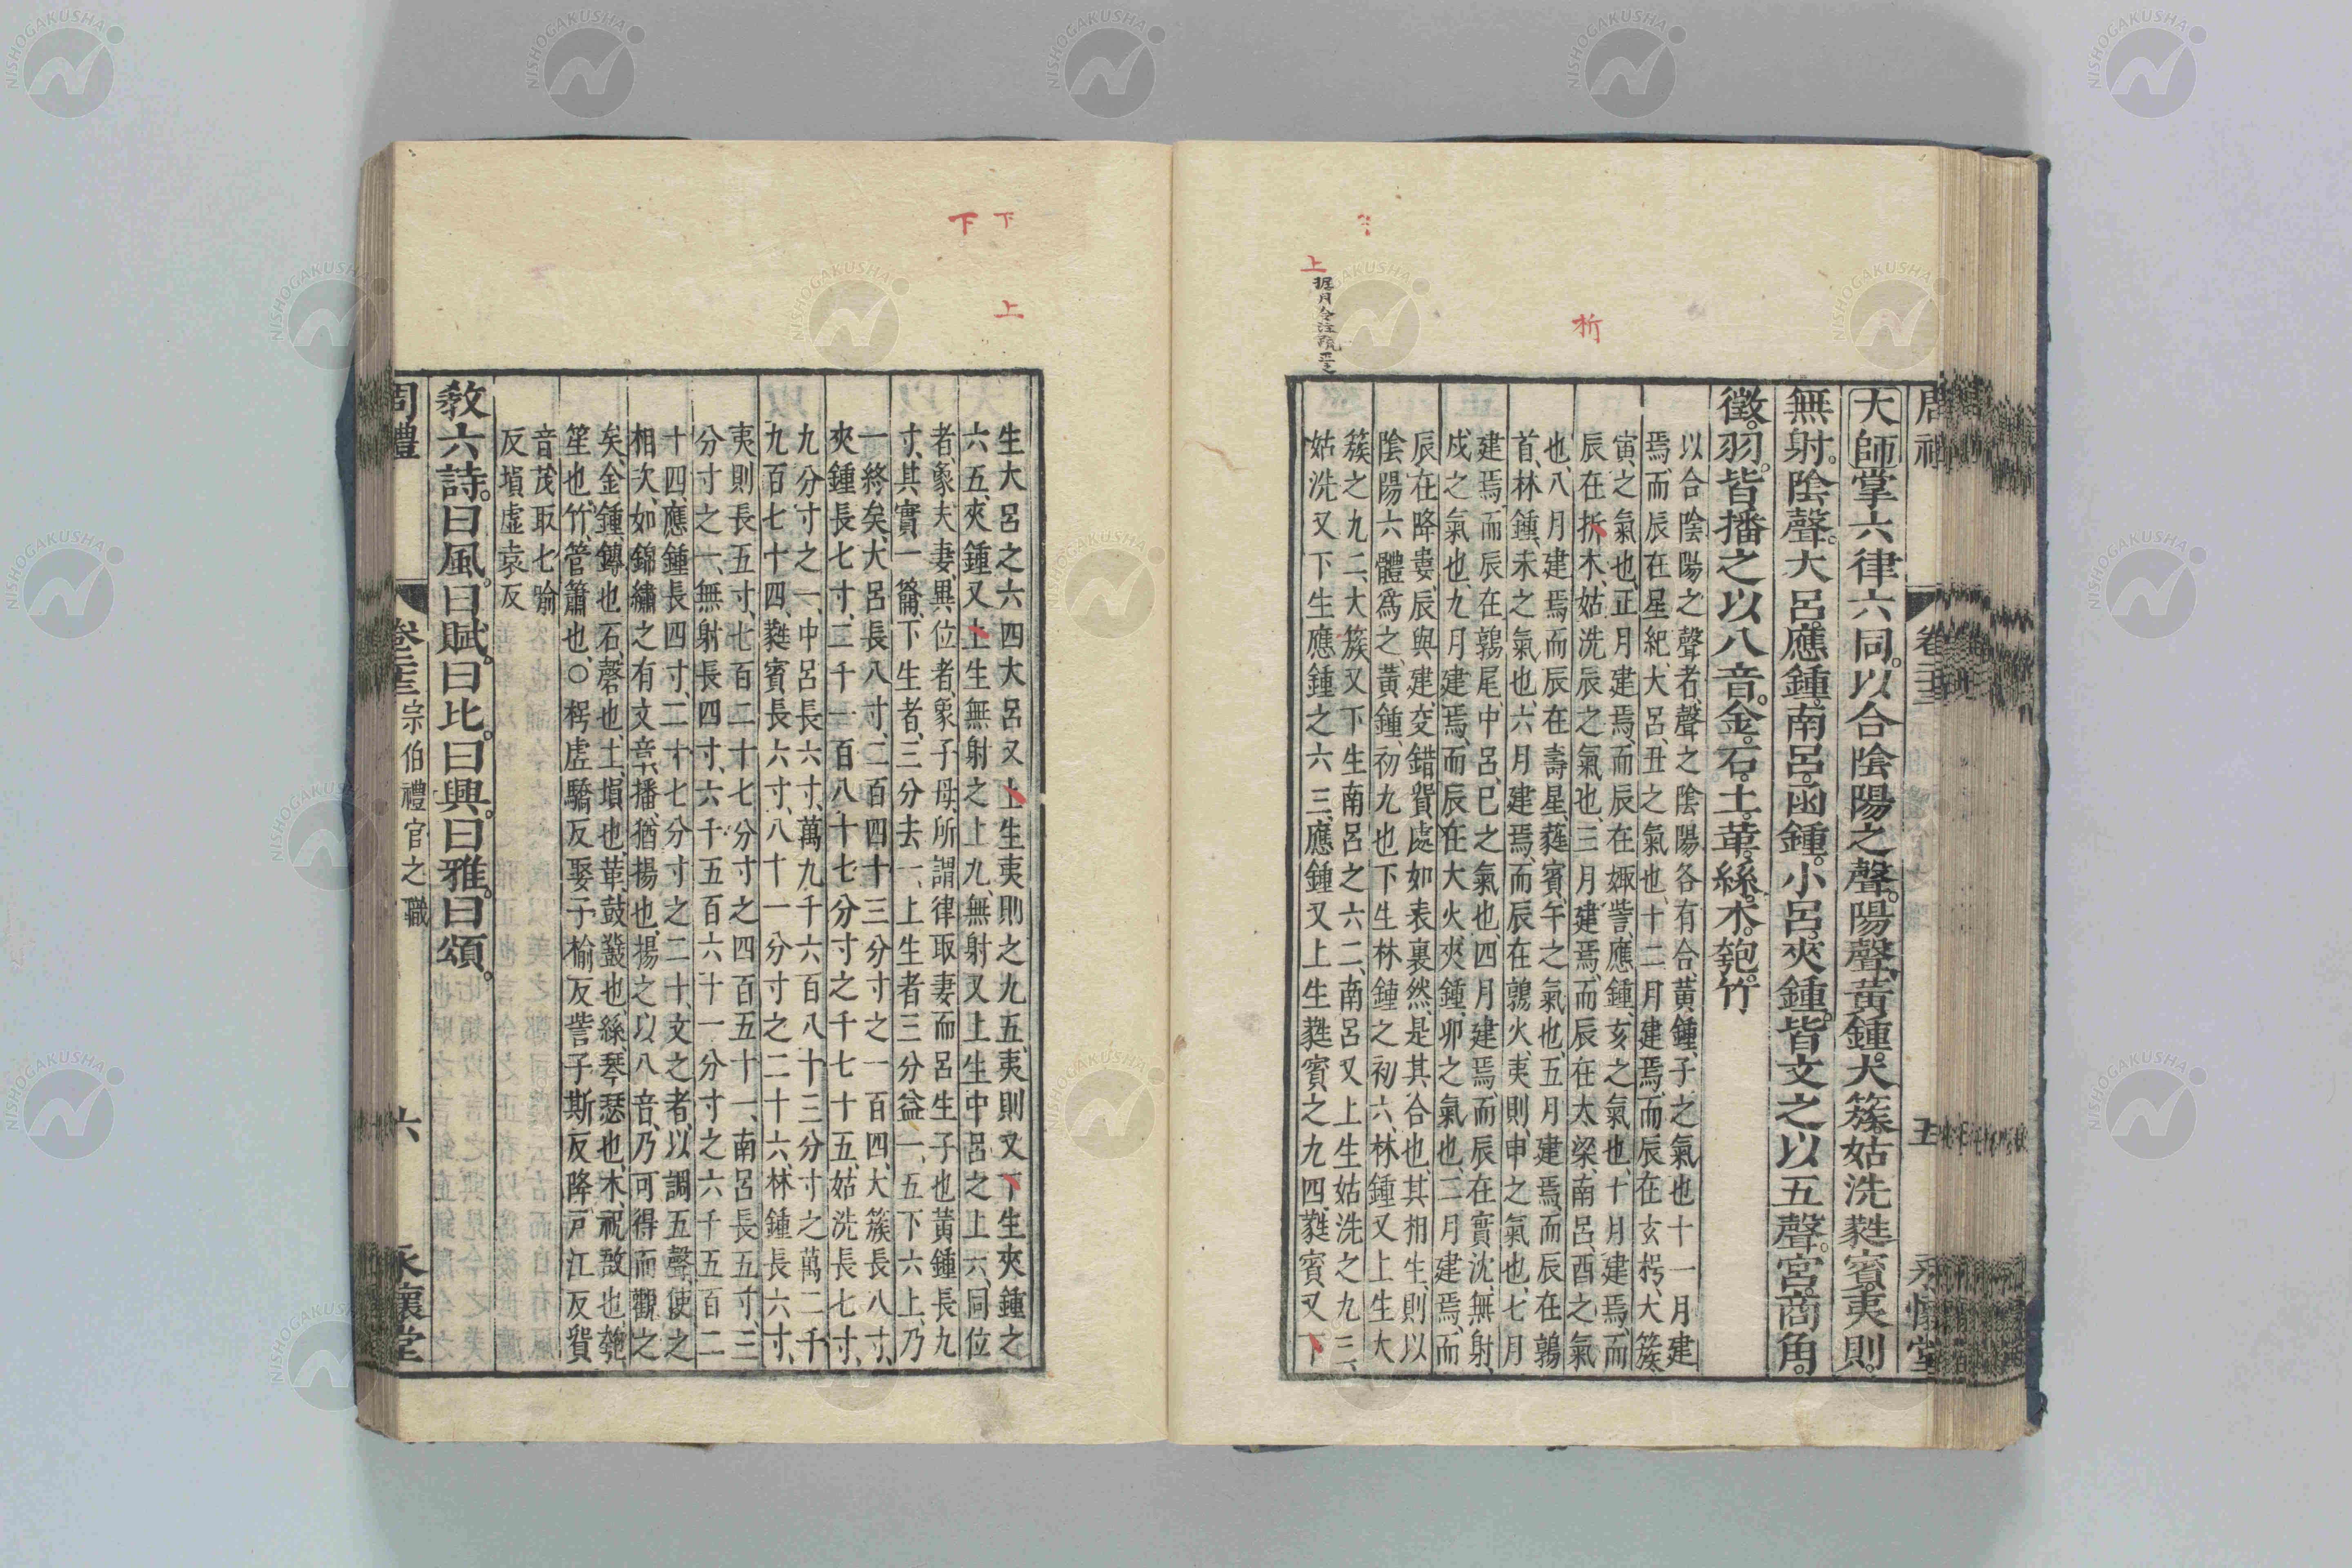 大師掌六律六同。以合陰陽之聲。陽聲、黃鍾。大簇姑洗蕤賓。夷則。
無射。陰聲。大呂。應鍾。南呂。函鍾。小呂。夾鍾。皆文之以五聲。宮。商。角。
徵。羽。皆播之以八音。金。石。土。革。絲。木。匏。竹
以合陰陽之聲者、聲之陰陽各有合、黃鍾、子之氣也十一月建
焉、而辰在星紀、大呂、丑之氣也、十二月建焉、而辰在玄枵、大簇、
寅之氣也、正月建焉、而辰在娵訾、應鍾、亥之氣也、十月建焉、而
辰在折木、姑洗、辰之氣也、三月建焉、而辰在大梁、南呂、酉之氣
也、八月建焉而辰在壽星、蕤賓、午之氣也、五月建焉、而辰在鶉
首、林鍾、未之氣也、六月建焉、而辰在鶉火、夷則、申之氣也、七月
建焉、而辰在鶉尾、中呂、巳之氣也、四月建焉、而辰在實沈、無射、
戌之氣也、九月建焉、而辰在大火、夾鍾、卯之氣也、二月建焉、而
辰在降婁、辰與建、交錯貿處如表裏然、是其合也、其相生、則以
陰陽六體爲之、黃鍾、初九也下生林鍾之初六、林鍾又上生大
簇之九二、大簇又下生南呂之六二、南呂又上生姑洗之九三、
姑洗又下生應鍾之六三、應鍾又上生蕤賓之九四、蕤賓又下
折
上
据月令注疏正之
下
上
下
生大呂之六四大呂又上生夷則之九五、夷則又下生夾鍾之
六五、夾鍾又上生無射之上九、無射又上生中呂之上六、同位
者、象夫妻、異位者、象子母、所謂律取妻而呂生子也黃鍾長九
寸、其實一籥、下生者、三分去一、上生者三分益一、五下六上、乃
一終矣、大呂長八寸、二百四十三分寸之一百四、大簇長八寸、
夾鍾長七寸、二千一百八十七分寸之千七十五、姑洗長七寸、
九分寸之一、中呂長六寸、萬九千六百八十三分寸之萬二千
九百七十四、蕤賓長六寸、八十一分寸之二十六、林鍾長六寸、
夷則長五寸、七百二十七分寸之四百五十一、南呂長五寸、三
分寸之一、無射長四寸、六千五百六十一分寸之六千五百二
十四、應鍾長四寸、二十七分寸之二十、文之者、以調五聲、使之
相次、如錦繡之有文章、播、猶揚也、揚之以八音、乃可得而觀之
矣、金、鍾鎛也石、磬也、土、塤也、革、鼓鼗也、絲、琴瑟也、木、柷敔也、匏、
笙也、竹、管簫也、○枵虛驕反娶子榆反訾子斯反降戸江反貿
音茂取七喻
反塤虛袁反
敎六詩。曰風。曰賦。曰比。曰興。曰雅。曰頌。
周禮 卷二十三 宗伯禮官之職 六 永懷堂